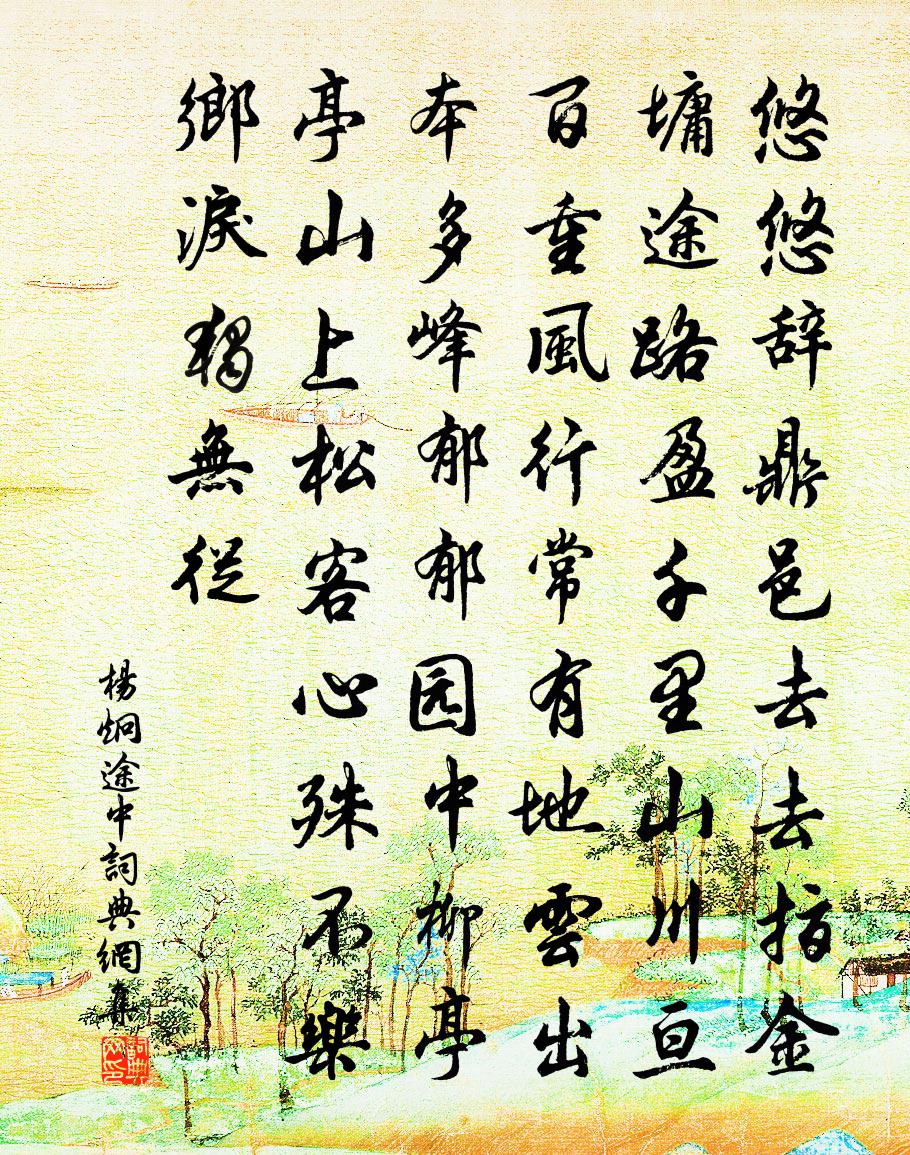 悠悠辞鼎邑去去指金
墉途路盈千里山川亘
百重風行常有地雲出
本多峰郁郁园中柳亭
亭山上松客心殊不樂
鄉淚獨無從
楊炯途中詞典網集